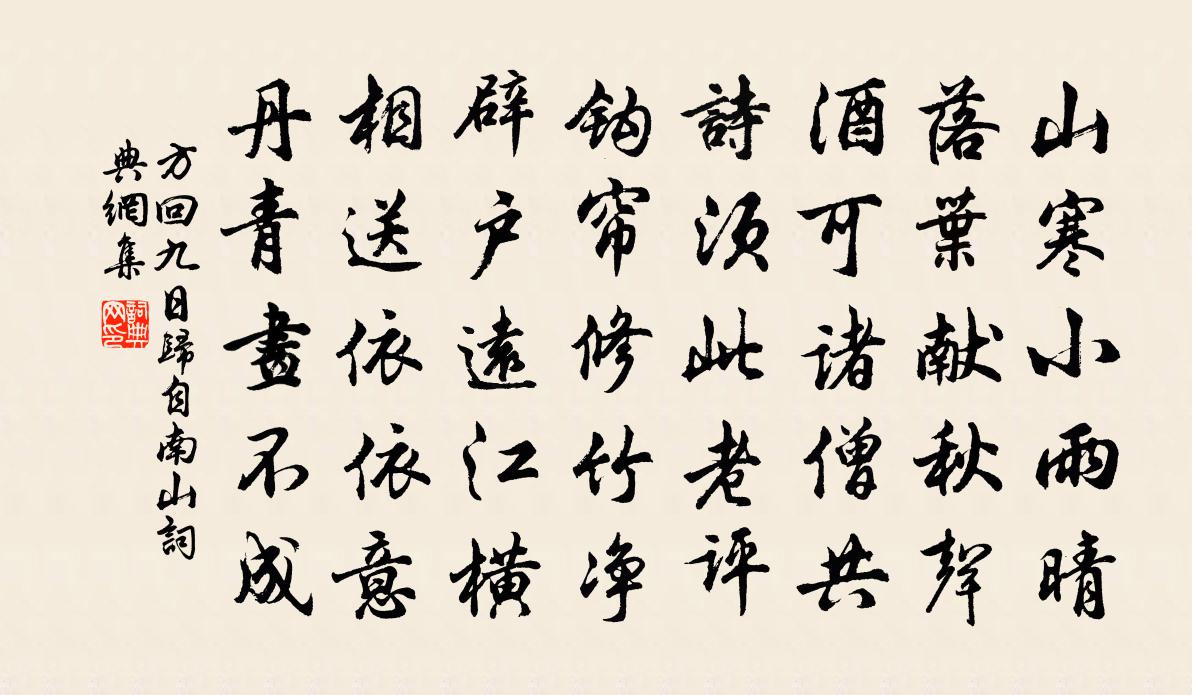 山寒小雨晴
落葉献秋聲
酒可诸僧共
詩須此老评
鈎帘修竹净
辟户遠江橫
相送依依意
丹青畫不成
方回九日歸自南山詞
典網集
詞典
网印